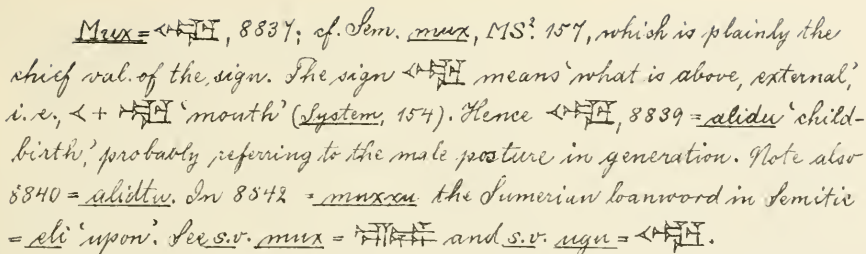 Mux = 𒌋𒅗, 8837; cf. Sem. mux, MSL. 157, which is plainly the
chief val. of the sign. The sign 𒌋𒅗 means 'what is above, external,'
i.e., 𒌋 + 𒅗 'mouth' (System, 154). Hence 𒌋𒅗, 8839 = alidu 'child-
birth,' probably referring to the male posture in generation. Note also
8840 = alidtu. In 8842 = muxxu the Sumerian loanword in Semitic
= eli 'upon'. See s.v. mux = and s.v. ugu = 𒌋𒅗.